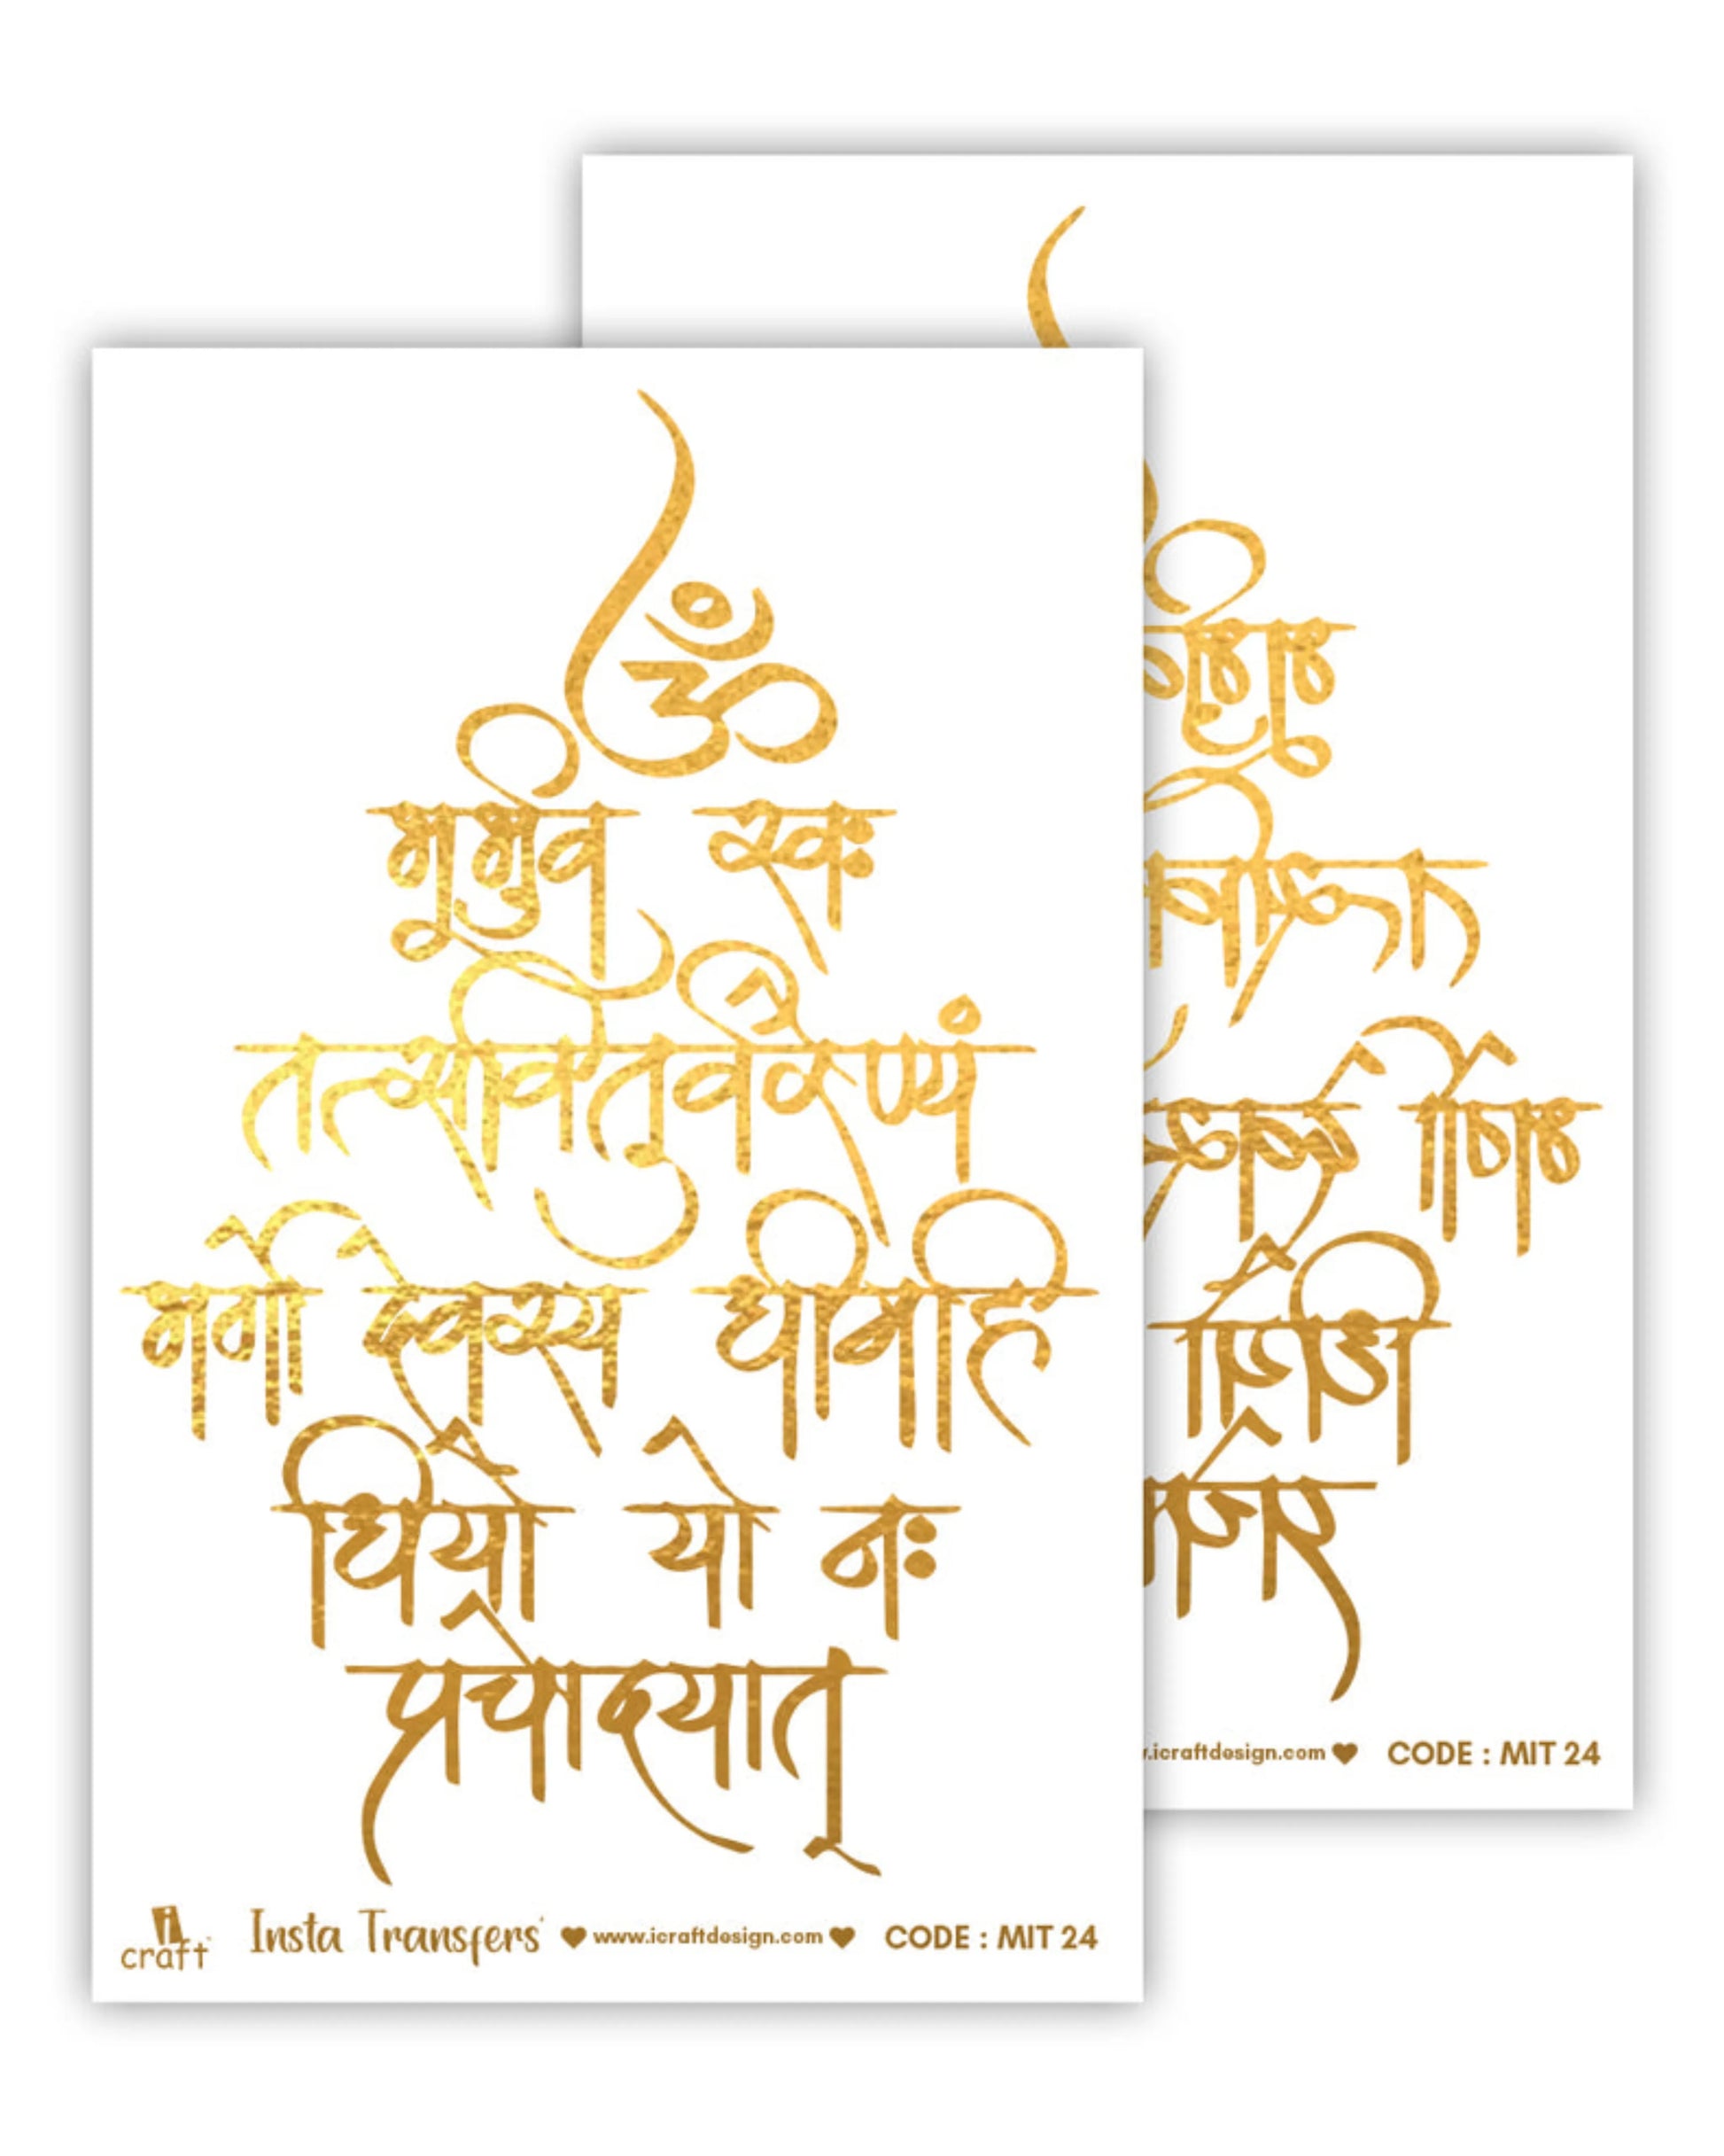 ॐ
भूर्भुव स्वः
तत्सवितुर्वरेण्यं
भर्गो देवस्य धीमहि
धियो यो नः
प्रचोदयात्
i craft Insta Transfers www.icraftdesign.com CODE : MIT 24
.icraftdesign.com CODE : MIT 24